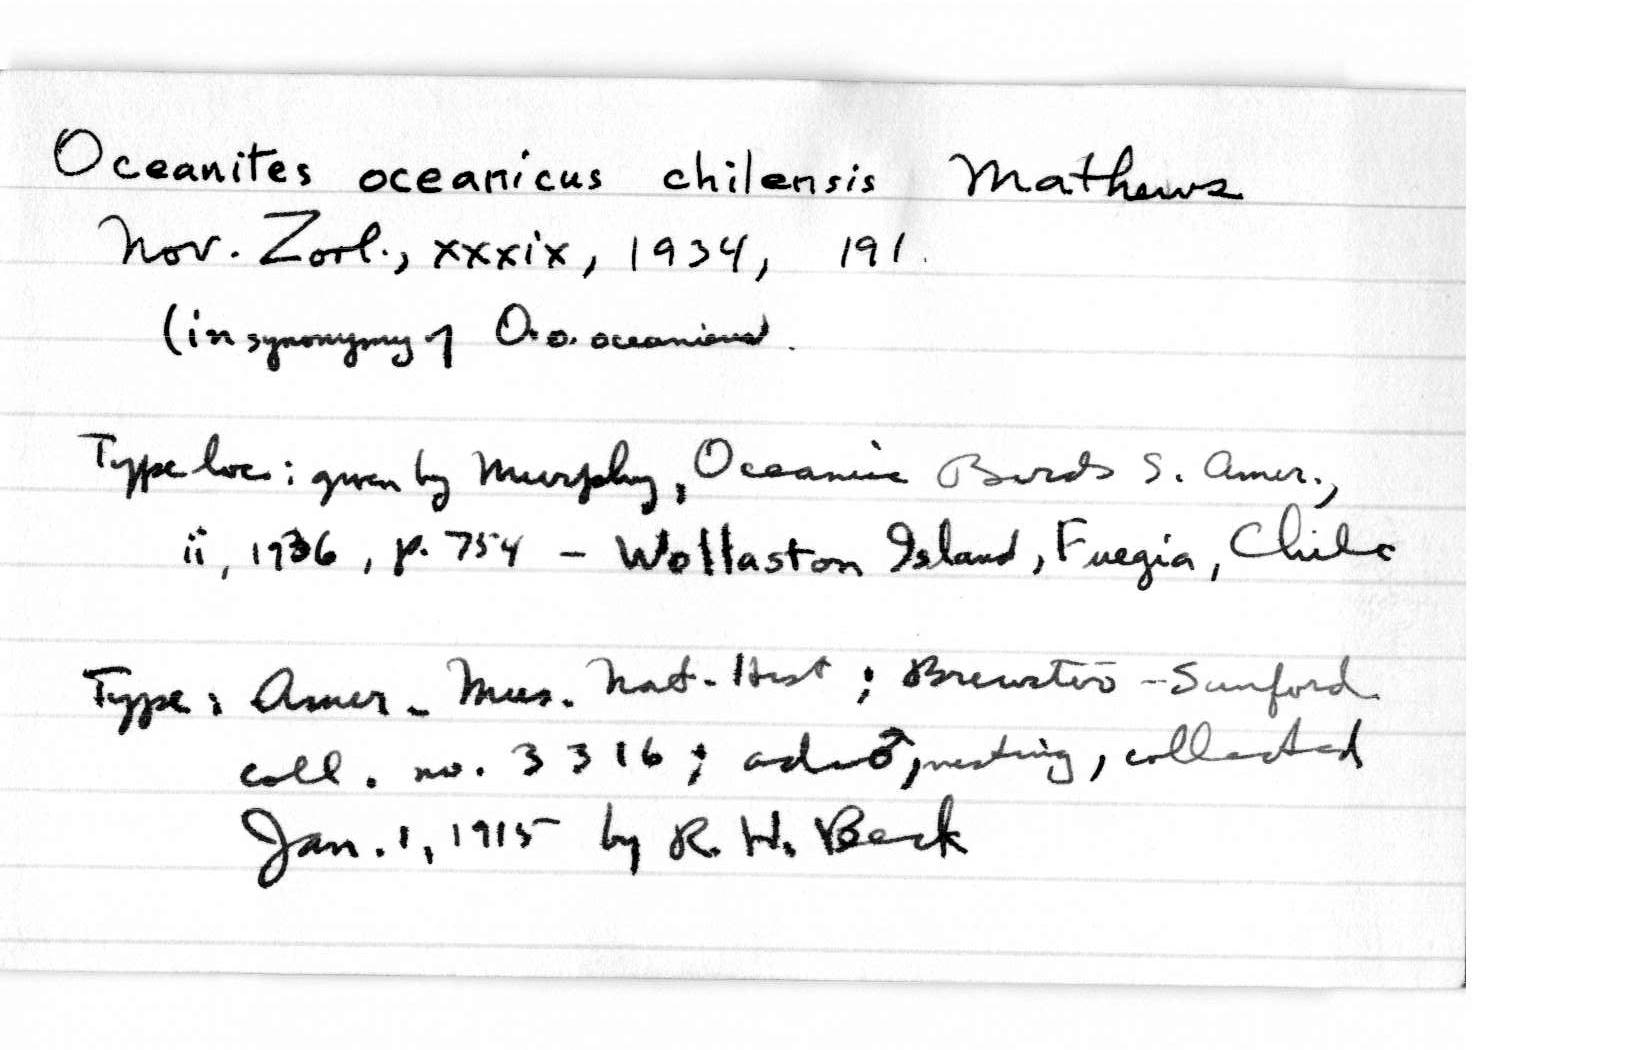 Oceanites oceanicus chilensis Mathews
Nov. Zool., xxxix, 1934, 191.
(in synonymy of O. o. oceanicus.
Type loc: given by Murphy, Oceanic Birds S. Amer.,
ii, 1936, p. 754 – Wollaston Island, Fuegia, Chile
Type: Amer. Mus. Nat. Hist; Brewster-Sanford
coll. no. 3316; ad ♂, nesting, collected
Jan. 1, 1915 by R. H. Beck